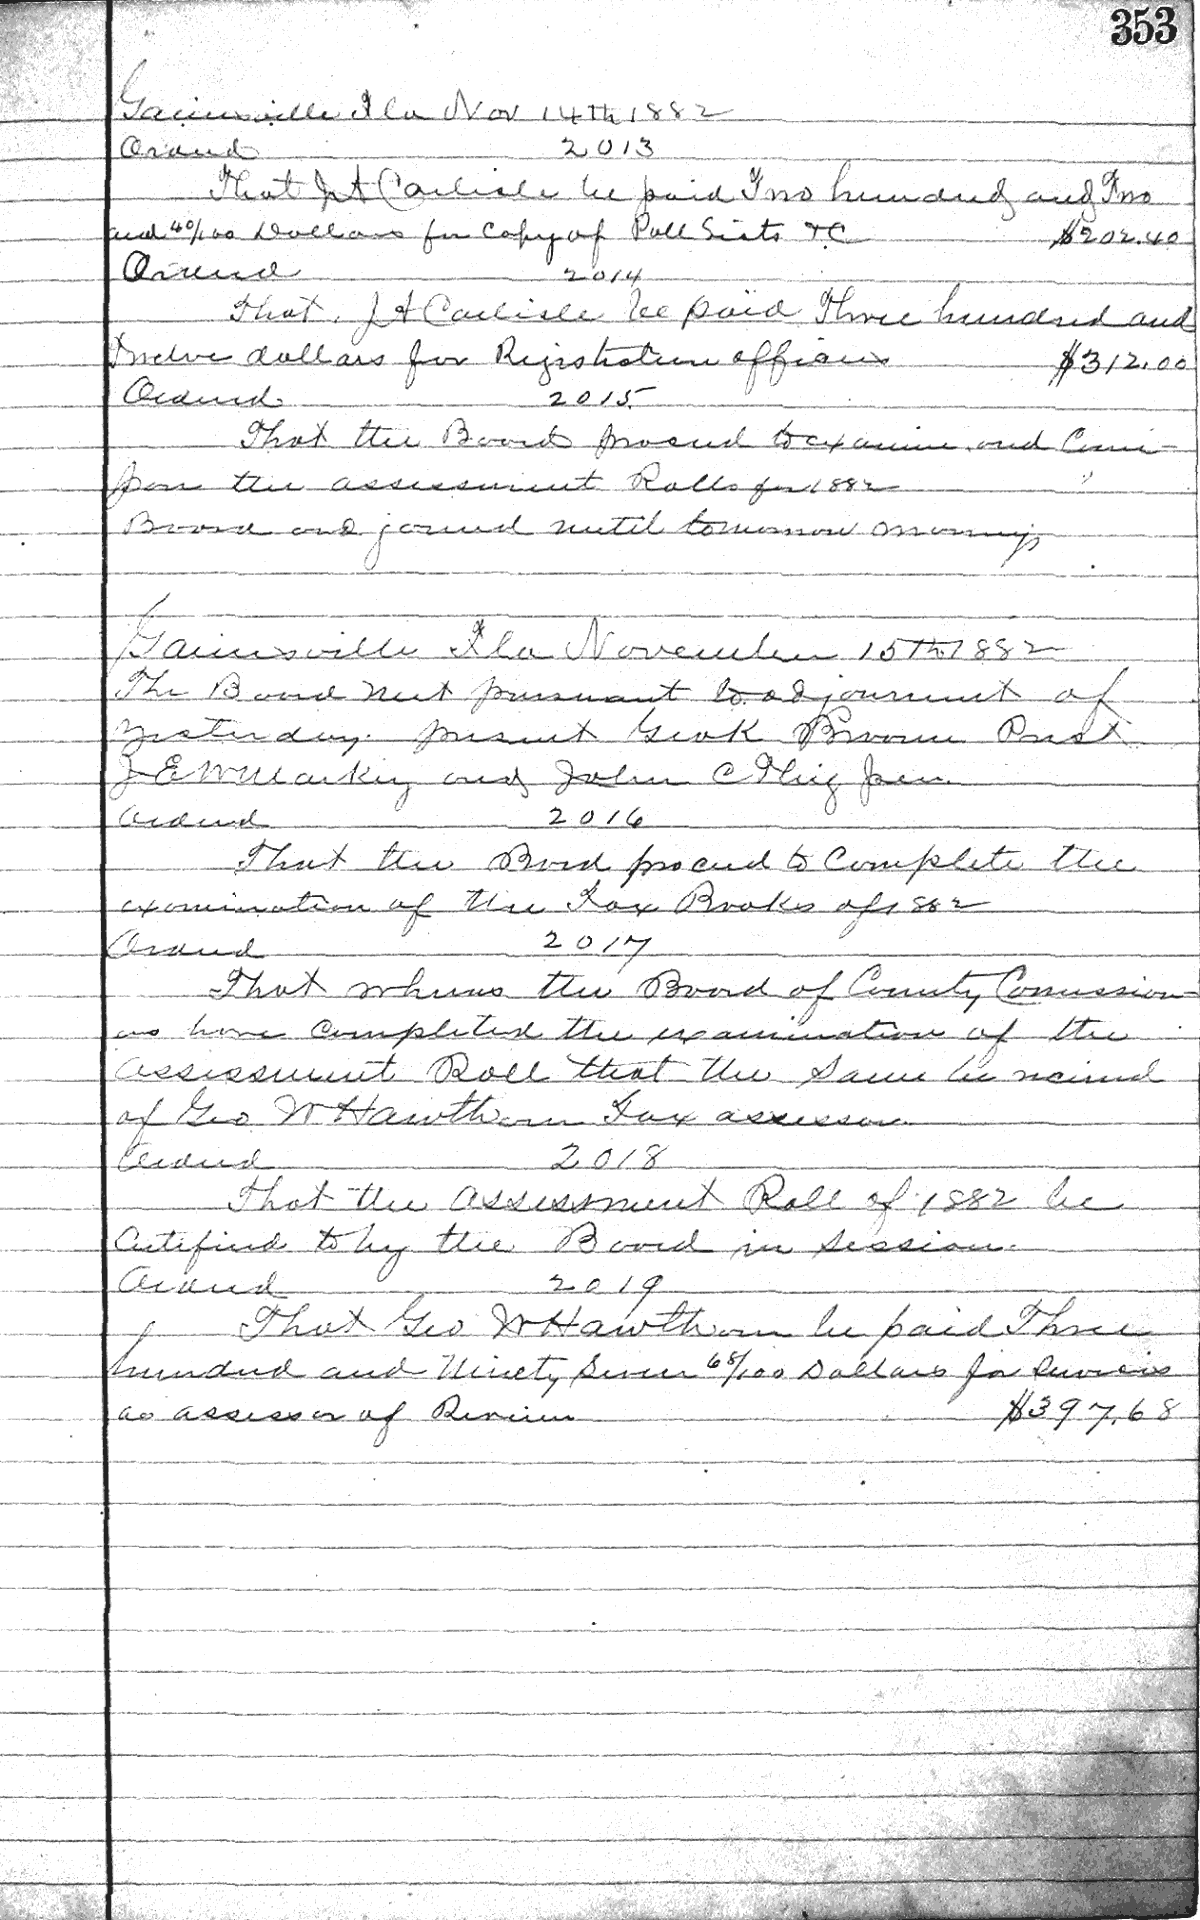 353
Gainesville Fla Nov 14th 1882
Ordered 2013
That J A Carlisle be paid Two hundred and Two
and 40/100 Dollars for Copy of Poll Lists &C $202.40
Ordered 2014
That J A Carlisle be paid Three hundred and
Twelve dollars for Registration officers $312.00
Ordered 2015
That the Board proceed to examine and Com-
pare the assessment Rolls for 1882
Board and jorned until tomorrow morning
Gainesville Fla November 15th 1882
The Board met pursuant to adjournment of
Yesterday. present Geo K Broome Prest
J E W and John C
Ordered 2016
That the Bord proceed to Complete the
examination of the Tax Books of 1882
Ordered 2017
That whereas the Board of County Comission-
ers have Completed the examination of the
Assessment Roll that the Same be received
of Geo W Hawthorn Tax assessor
Ordered 2018
That the assessment Roll of 1882 be
Certified to by the Board in Session.
Ordered 2019
That Geo W Hawthorn be paid Three
hundred and Ninety Seven 68/100 Dollars for Services
as assessor of Revenue $397.68